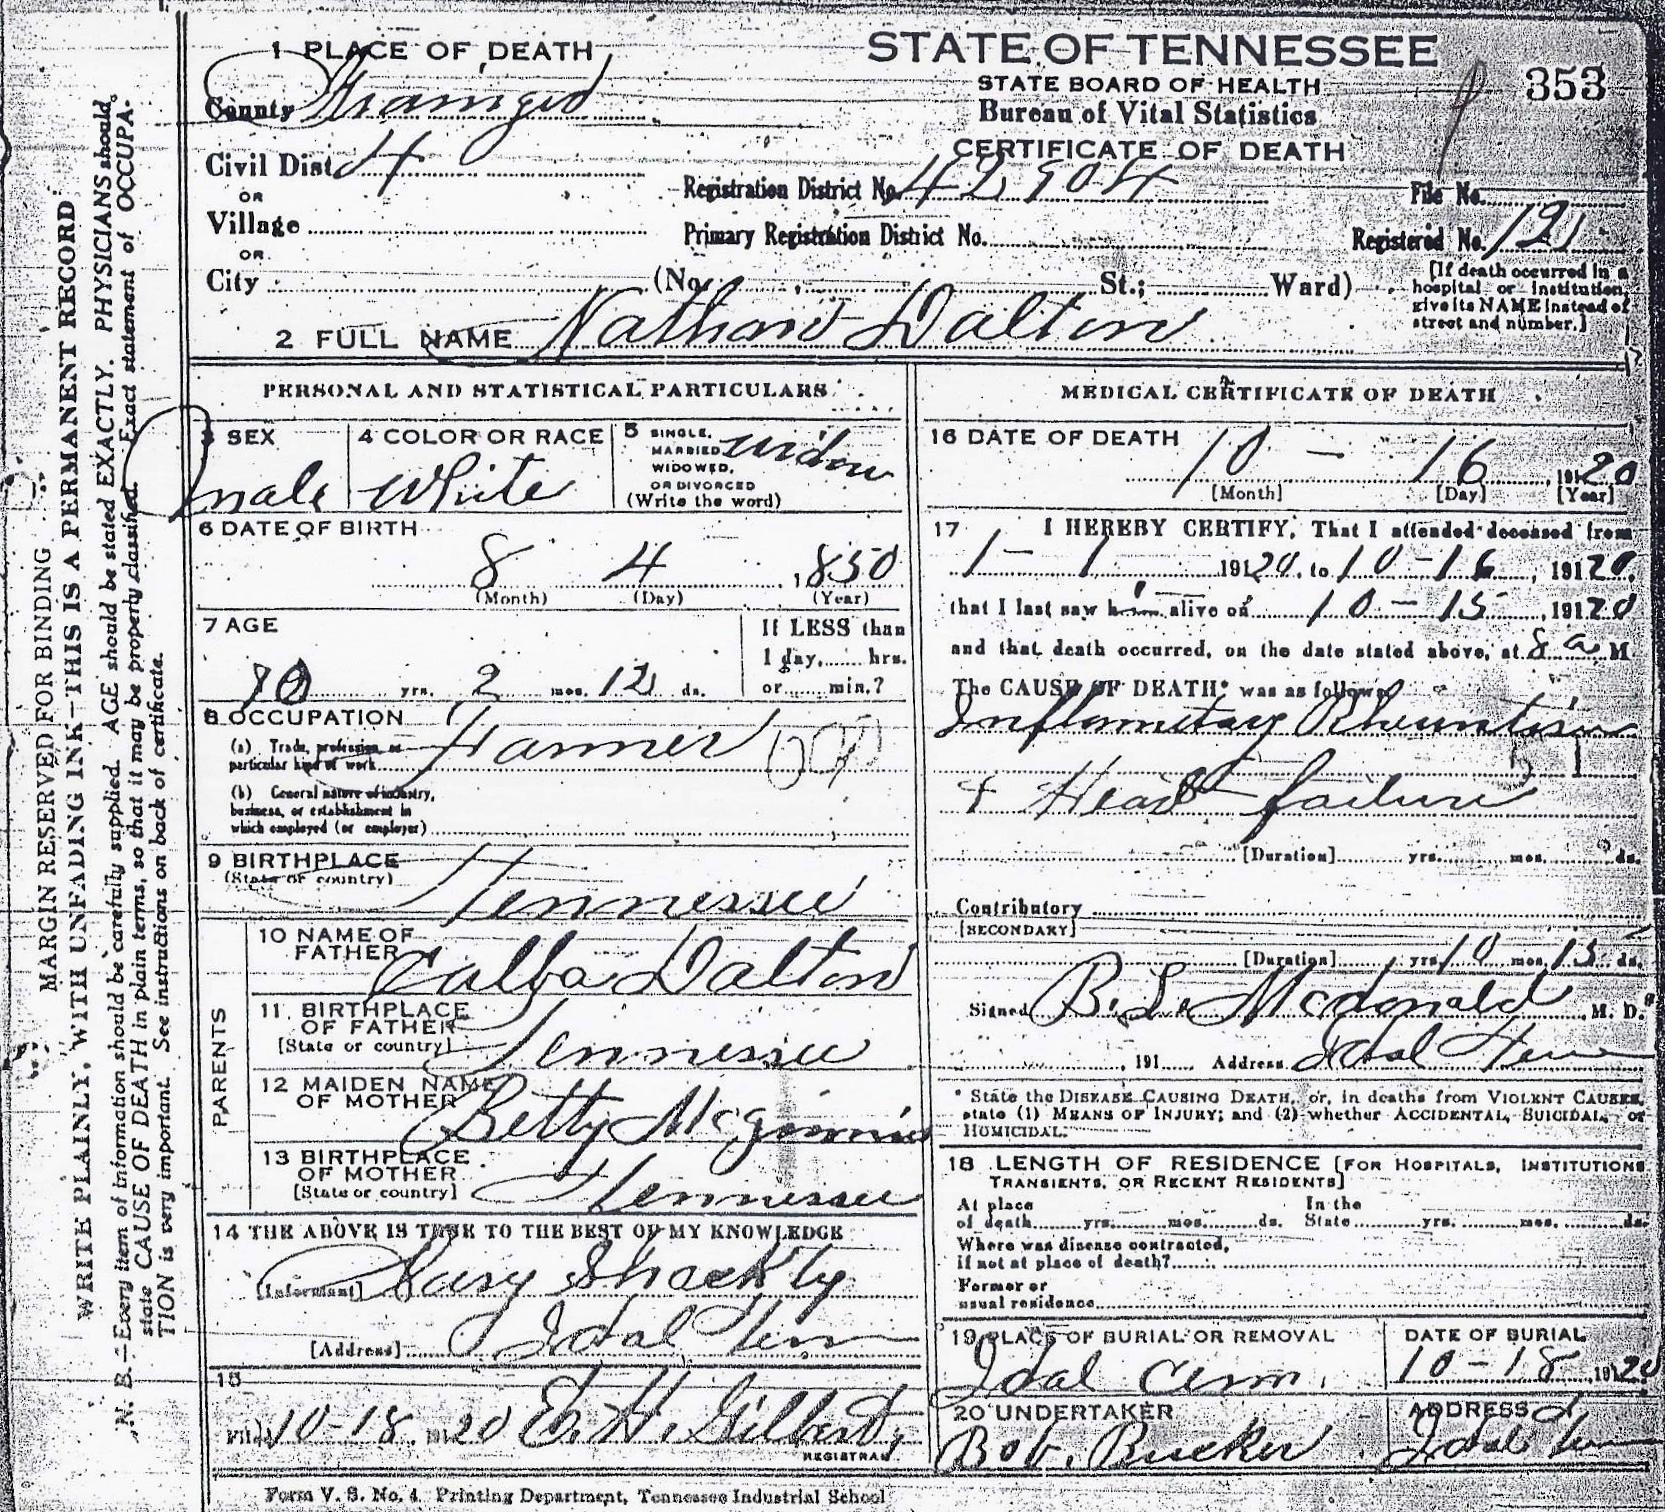 1 PLACE OF DEATH
County
Civil Dist. 4
OR
Village
OR
City (No. St.; Ward)
STATE OF TENNESSEE
STATE BOARD OF HEALTH
Bureau of Vital Statistics
CERTIFICATE OF DEATH
353
Registration District No. 42904
File No.
Primary Registration District No.
Registered No. 121
[If death occurred in a
hospital or institution,
give its NAME instead of
street and number.]
2 FULL NAME Nathan Dalton
PERSONAL AND STATISTICAL PARTICULARS
3 SEX
male
4 COLOR OR RACE
White
5 SINGLE,
MARRIED,
WIDOWED,
OR DIVORCED
(Write the word)
Widow
6 DATE OF BIRTH
8 4 , 1850
(Month) (Day) (Year)
7 AGE
70 yrs. 2 mos. 12 ds.
If LESS than
1 day, hrs.
or min.?
8 OCCUPATION
(a) Trade, profession, or
particular kind of work
Farmer
(b) General nature of industry,
business, or establishment in
which employed (or employer)
9 BIRTHPLACE
(State or country)
Tennessee
PARENTS
10 NAME OF
FATHER
Dalton
11 BIRTHPLACE
OF FATHER
[State or country]
Tennessee
12 MAIDEN NAME
OF MOTHER
Betty McGinnis
13 BIRTHPLACE
OF MOTHER
[State or country]
Tennessee
14 THE ABOVE IS TRUE TO THE BEST OF MY KNOWLEDGE
[Informant]
[Address] Idol Tenn
15
Filed 10-18, 1920 E. H. Gilbert,
REGISTRAR
MEDICAL CERTIFICATE OF DEATH
16 DATE OF DEATH
10 - 16 , 1920
[Month] [Day] [Year]
17 I HEREBY CERTIFY, That I attended deceased from
1 - 1 , 19120, to 10-16, 19120,
that I last saw him alive on 10-15, 19120
and that death occurred, on the date stated above, at 8 a M
The CAUSE OF DEATH* was as follows:
Inflamitary Rheumtism
& Heart failure
[Duration] yrs. mos. ds.
Contributory
[SECONDARY]
[Duration] yrs. 10 mos. 15 ds.
Signed B. L. McDonald, M. D.
, 191 Address Idol Tenn
* State the DISEASE CAUSING DEATH, or, in deaths from VIOLENT CAUSES,
state (1) MEANS OF INJURY; and (2) whether ACCIDENTAL, SUICIDAL, or
HOMICIDAL.
18 LENGTH OF RESIDENCE [FOR HOSPITALS, INSTITUTIONS
TRANSIENTS, OR RECENT RESIDENTS]
At place In the
of death yrs. mos. ds. State yrs. mos. ds.
Where was disease contracted,
if not at place of death?
Former or
usual residence
19 PLACE OF BURIAL OR REMOVAL
Idol Cem.
DATE OF BURIAL
10-18, 19120
20 UNDERTAKER
Bob. Bucker
ADDRESS
Idol Tenn
Form V. S. No. 4. Printing Department, Tennessee Industrial School
MARGIN RESERVED FOR BINDING
WRITE PLAINLY, WITH UNFADING INK—THIS IS A PERMANENT RECORD
N. B.—Every item of information should be carefully supplied. AGE should be stated EXACTLY. PHYSICIANS should
state CAUSE OF DEATH in plain terms, so that it may be properly classified. Exact statement of OCCUPA-
TION is very important. See instructions on back of certificate.